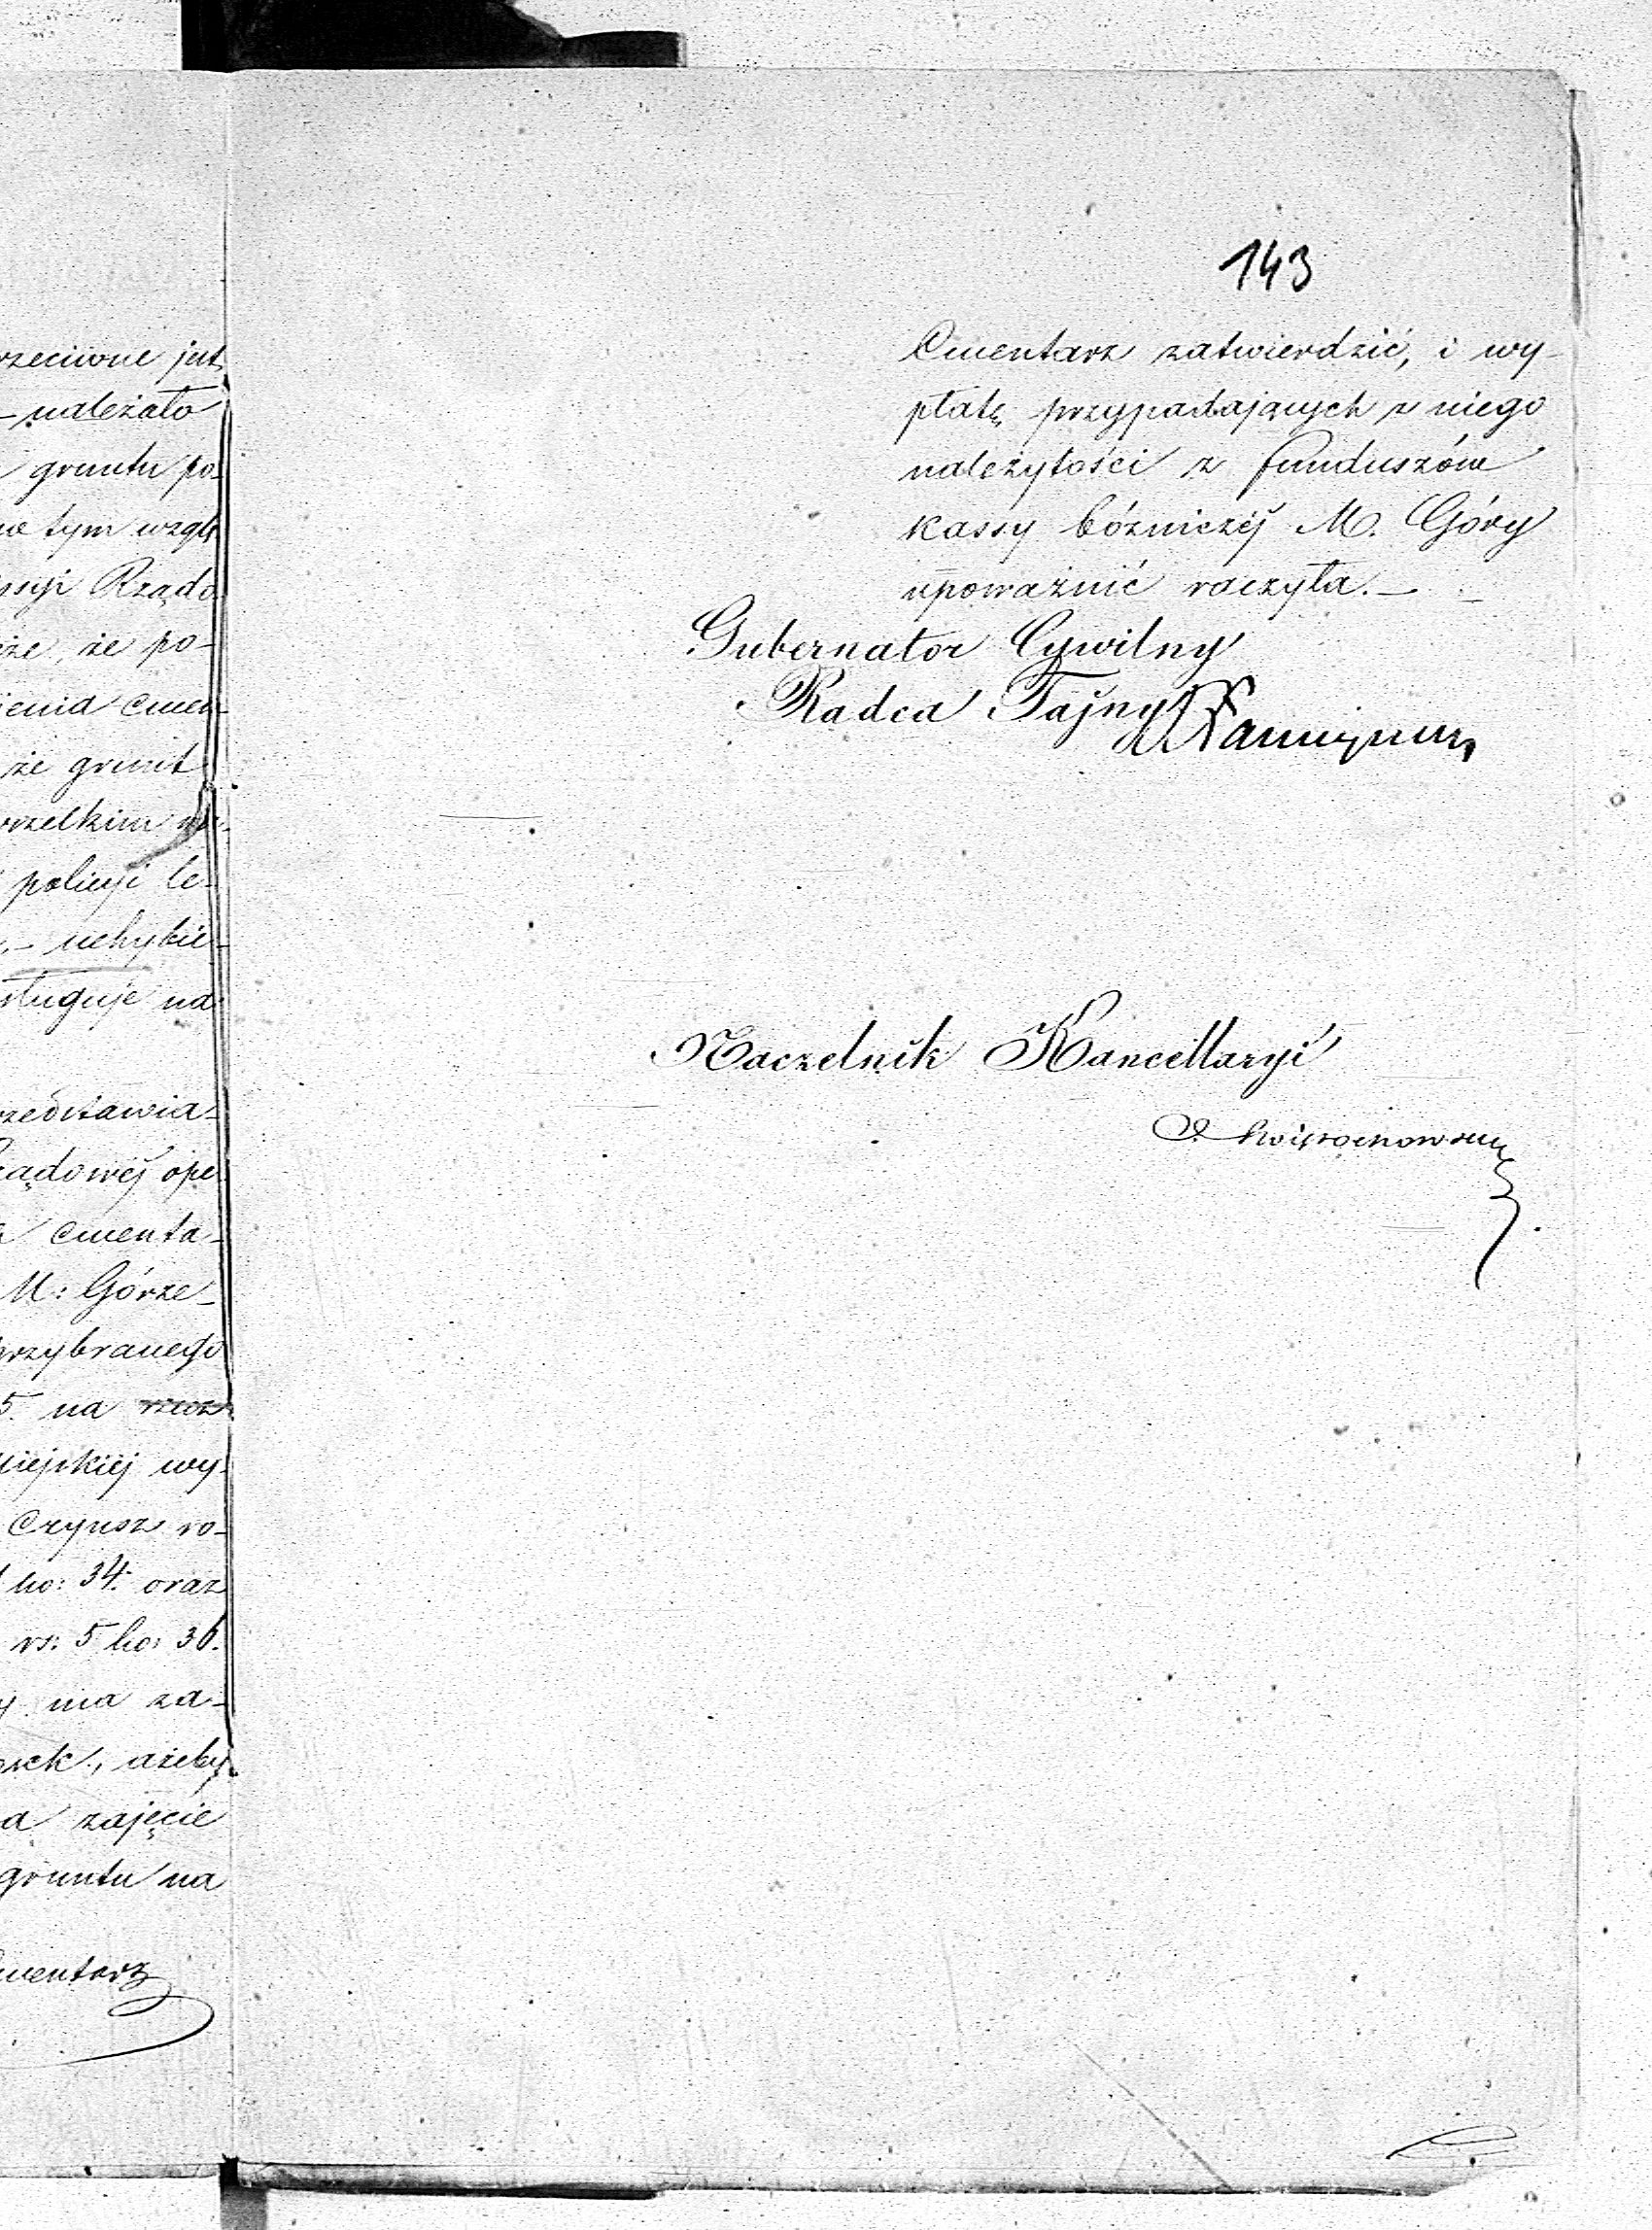 rzeciwne jest
- należało
gruntu po-
we tym wzglę
ssyi Rządo
że, że po-
ienia cmen-
że grunt
wszelkim
policyi le-
- uchybie-
sługuje na
rzedstawia-
Rządowéj ope-
cmenta-
M: Górze
przybranego
5. na
miejskiéj wy-
Czynsz ro-
ko: 34. oraz
rs: 5 ko: 36.
ma za-
ażeby
a zajęcie
gruntu na
mentarz
143
Cmentarz zatwierdzić, i wy-
płatę przypadających z niego
należytości z funduszów
kassy bóżniczéj M. Góry
upoważnić raczyła.-
Gubernator Cywilny
Radca Tajny
Naczelnik Kancellaryi